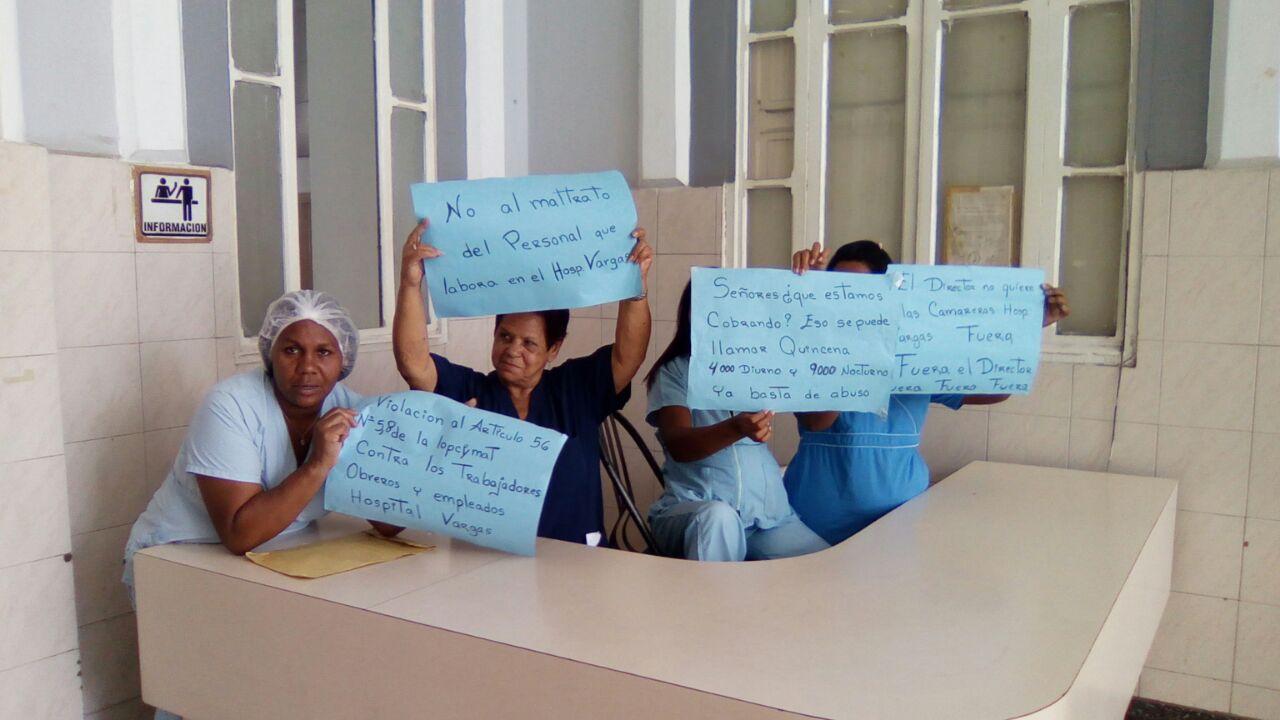 INFORMACION
No al maltrato
del Personal que
labora en el Hosp. Vargas
Violacion al Articulo 56
N= 5,8 de la lopcymat
Contra los Trabajadores
Obreros y empleados
Hospital Vargas
Señores ¿que estamos
Cobrando? Eso se puede
llamar Quincena
4000 Diurno y 9000 Nocturno
Ya basta de abuso
El Director no quiere
las Camareras Hosp.
argas Fuera
Fuera el Director
uera Fuera Fuera